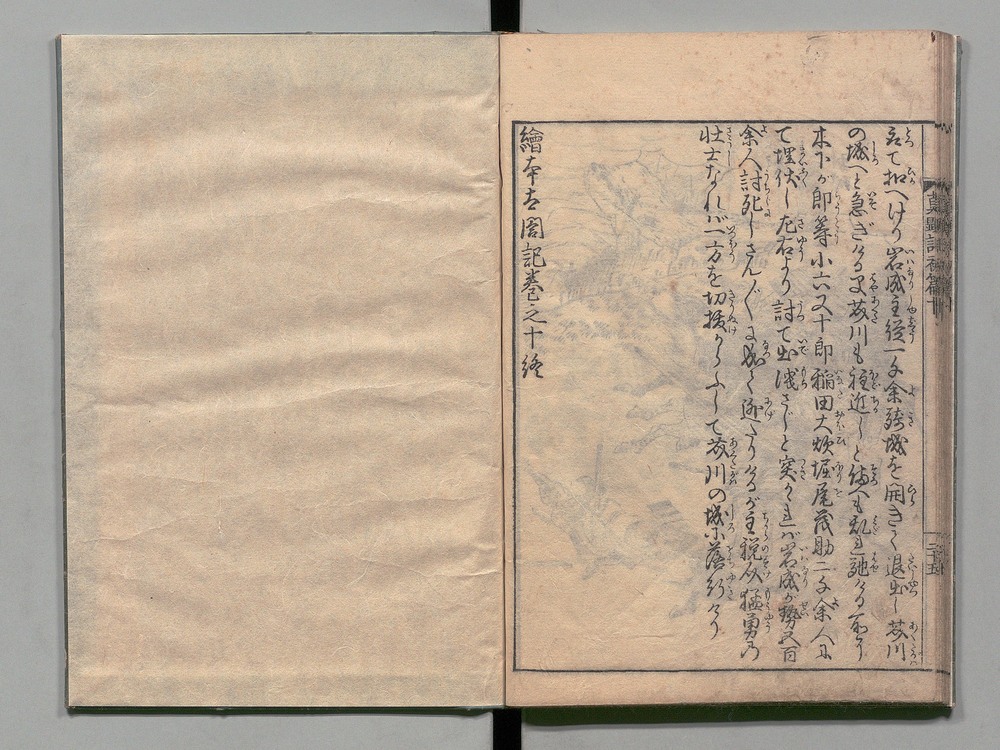 て扣へけり岩成主従一千余騎城を開きて退出し芥川
の城へと急ぎける又芥川も程近しと備へも乱れ馳する所に
木下が郎等小六又十郎稲田大炊堀尾茂助二千余人に
て埋伏し左右より討て出溅さじと突かゝれば岩成が勢五百
余人討死しさん／″＼に成て逃たりけるが主税介猛勇の
壮士なれば一方を切抜からふじて芥川の城に落行けり
繪本太閤記巻之十終
真顕記初篇十
二十五